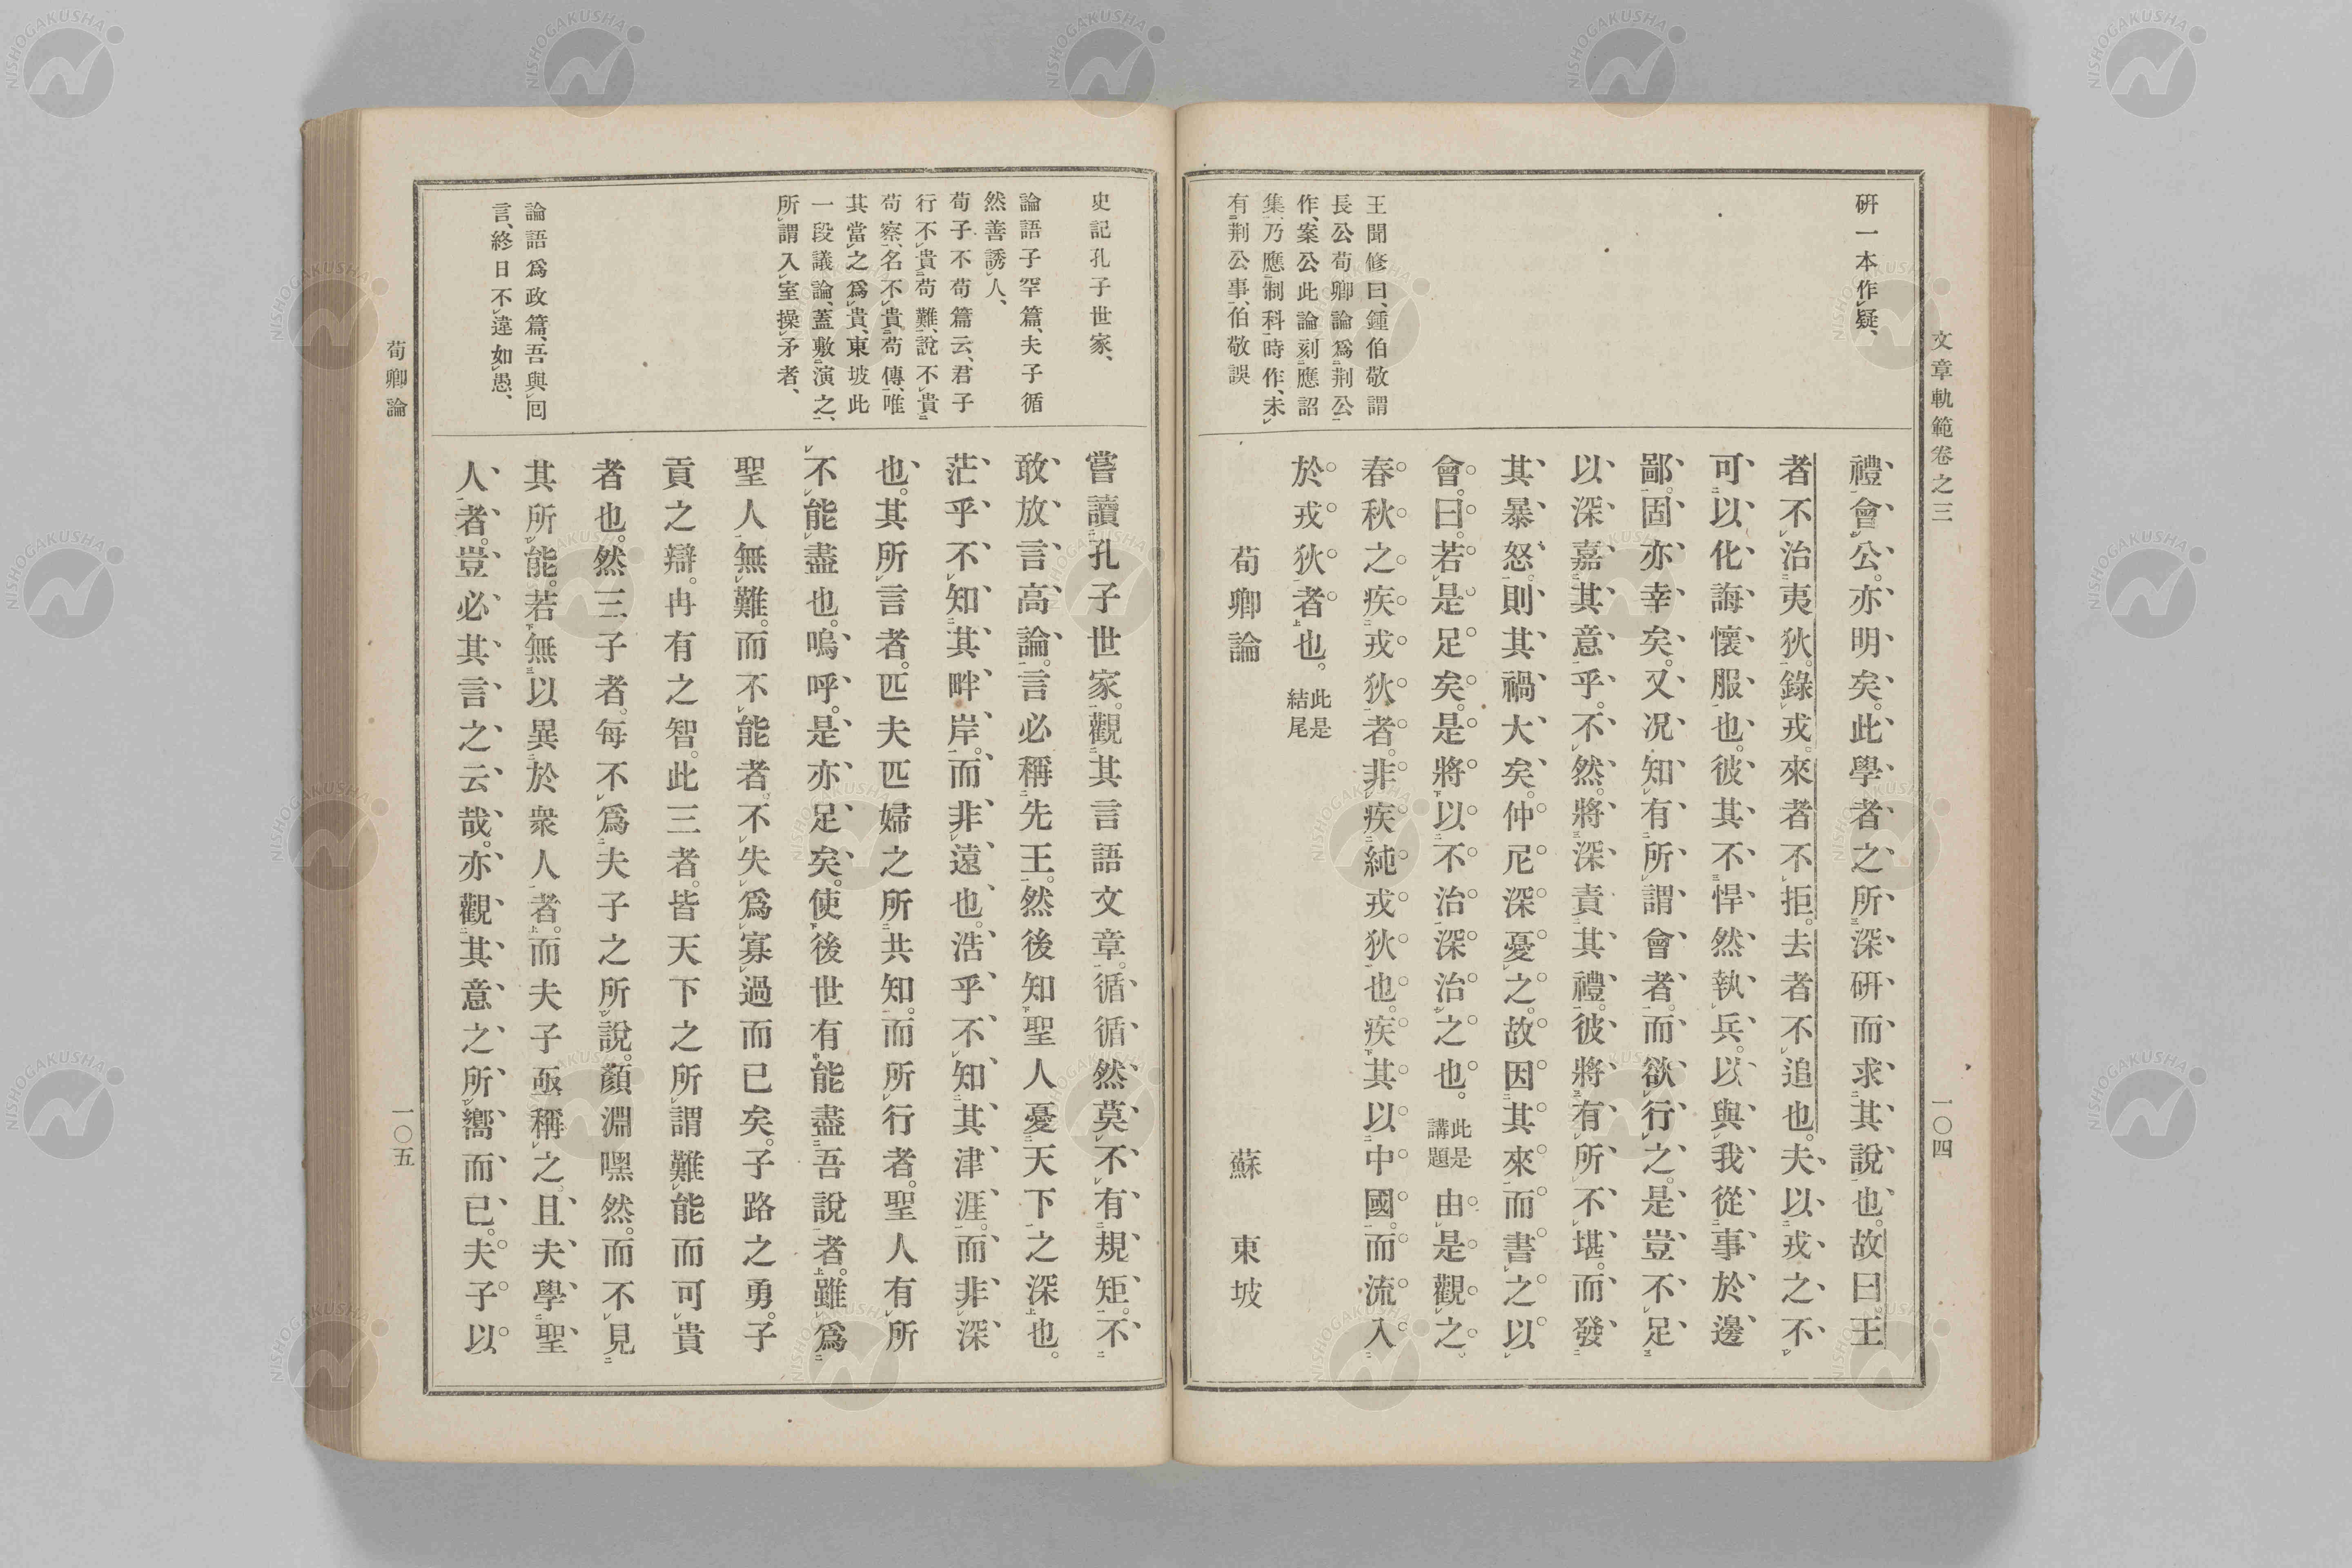 文章軌範卷之三
一〇四
研一本作疑、
王聞修曰、鍾伯敬謂
長公荀卿論爲荆公
作、案公此論刻應詔
集、乃應制科時作、未
有荆公事、伯敬誤
禮會公。亦明矣。此學者之所深研而求其說也。故曰王
者不治夷狄。錄戎。來者不拒。去者不追也。夫以戎之不
可以化誨懷服也。彼其不悍然執兵。以與我從事於邊
鄙。固亦幸矣。又况知有所謂會者。而欲行之。是豈不足
以深嘉其意乎。不然。將深責其禮。彼將有所不堪。而發
其暴怒。則其禍大矣。仲尼深憂之。故因其來而書之以
會。曰。若是足矣。是將以不治深治之也。此是講題由是觀之。
春秋之疾戎狄者。非疾純戎狄也。疾其以中國。而流入
於戎狄者也。此是結尾
荀卿論 蘇東坡
史記孔子世家、
論語子罕篇、夫子循
然善誘人、
荀子不苟篇云、君子
行不貴苟難、說不貴
苟察、名不貴苟傳、唯
其當之爲貴、東坡此
一段議論、蓋敷演之、
所謂入室操矛者、
論語爲政篇、吾與回
言、終日不違如愚、
嘗讀孔子世家。觀其言語文章。循循然莫不有規矩。不
敢放言高論。言必稱先王。然後知聖人憂天下之深也。
茫乎不知其畔岸。而非遠也。浩乎不知其津涯。而非深
也。其所言者。匹夫匹婦之所共知。而所行者。聖人有所
不能盡也。嗚呼。是亦足矣。使後世有能盡吾說者。雖爲
聖人無難。而不能者。不失爲寡過而已矣。子路之勇。子
貢之辯。冉有之智。此三者。皆天下之所謂難能而可貴
者也。然三子者。每不爲夫子之所說。顏淵嘿然。而不見
其所能。若無以異於衆人者。而夫子亟稱之。且夫學聖
人者。豈必其言之云哉。亦觀其意之所嚮而已。夫子以
荀卿論
一〇五